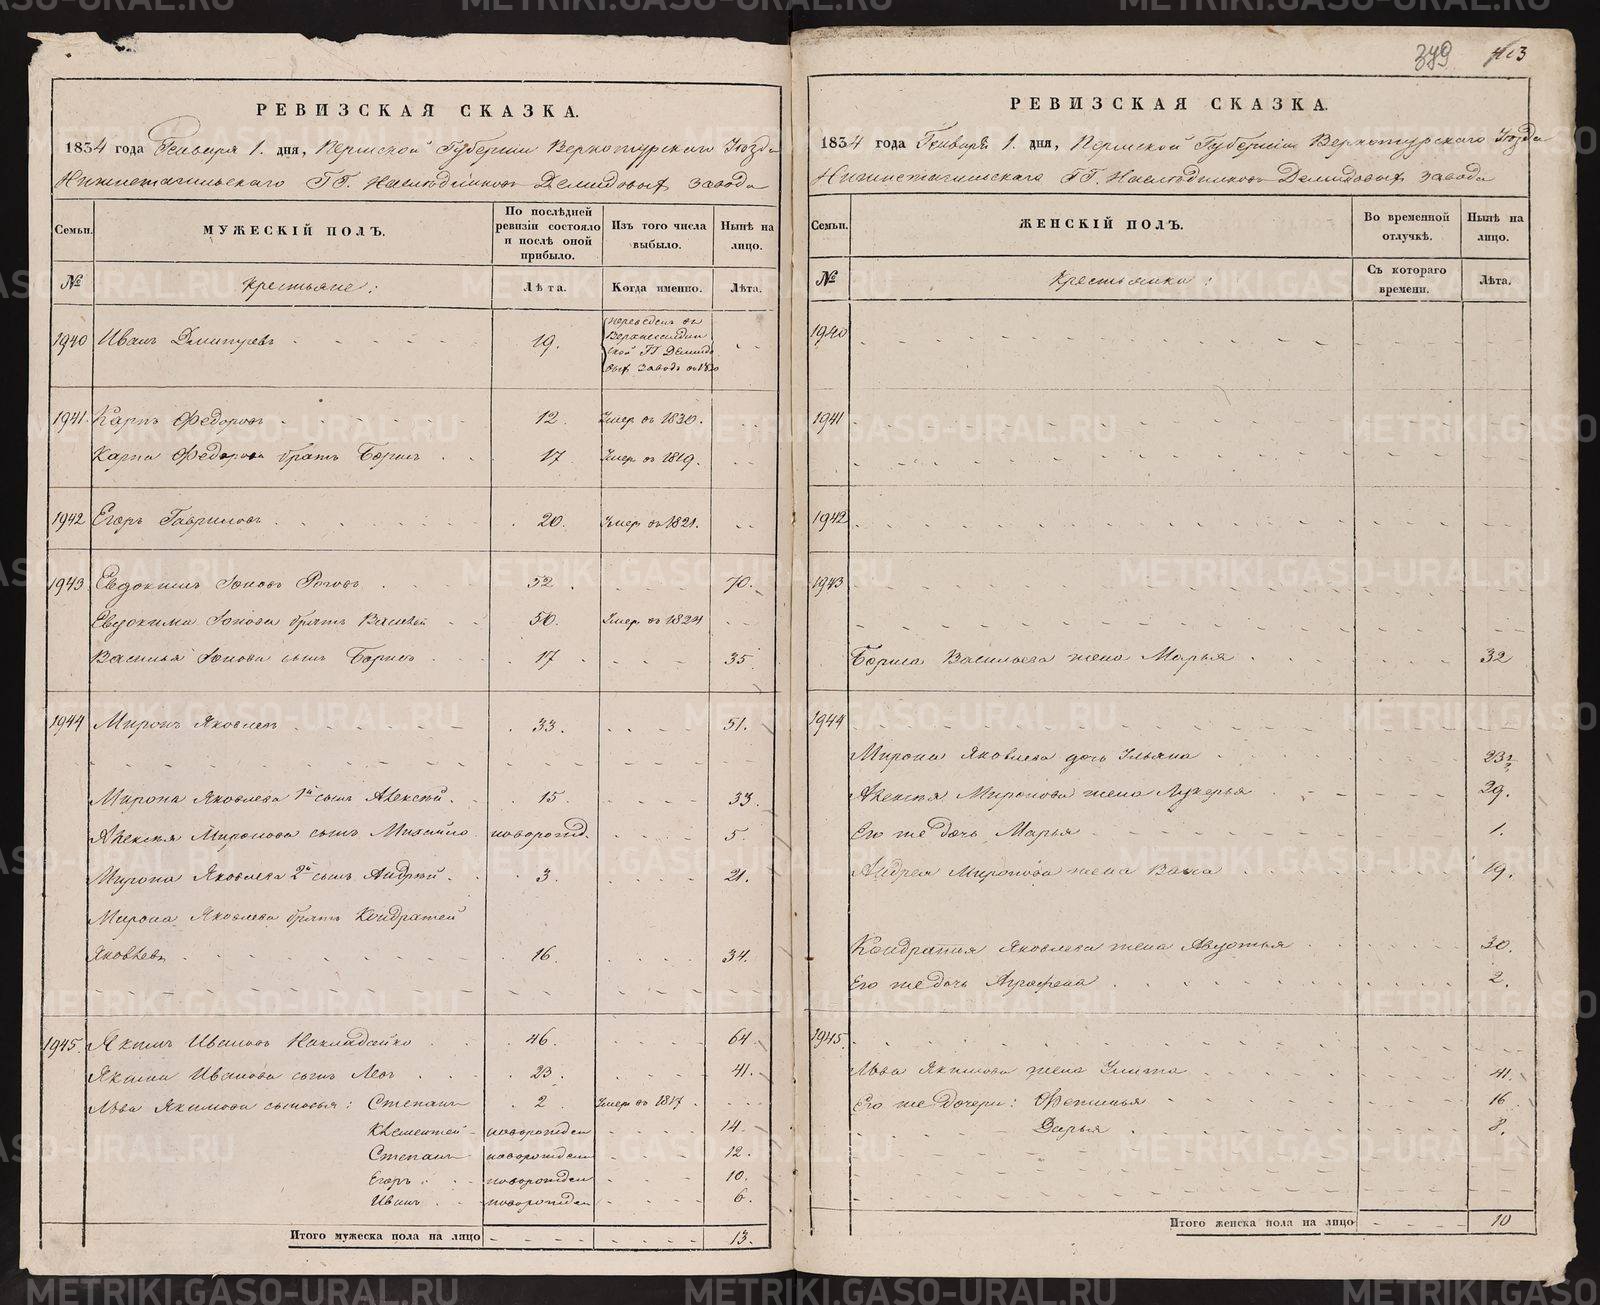 РЕВИЗСКАЯ СКАЗКА.
1834 года Генваря 1. дня, Пермской Губернии Верхотурского Уезда
Нижнетагильского ГГ. Наследников Демидовых завода
Семьи. МУЖЕСКІЙ ПОЛЪ. По послѣдней ревизіи состояло и послѣ оной прибыло. Изъ того числа выбыло. Нынѣ на лицо.
№ Крестьяне: Лѣта. Когда именно. Лѣта.
1940 Иванъ Дмитріевъ 19. переведен въ
1941. Карпъ Федоровъ 12. Умер въ 1830.
Карпа Федорова братъ Борисъ 17 Умер въ 1819.
1942 Егоръ Гавриловъ 20. Умер въ 1821.
1943 Евдокимъ Іоновъ Роговъ 52 70.
Евдокима Іонова братъ Василей 50. Умер въ 1824
Василья Іонова сынъ Борисъ 17 35
1944 Миронъ Яковлевъ 33. 51.
Мирона Яковлева 1й сынъ Алексѣй 15 33.
Алексѣя Миронова сынъ Михайло новорожд. 5.
Мирона Яковлева 2й сынъ Андрѣй 3 21.
Мирона Яковлева братъ Кондратей
Яковлевъ 16. 34.
1945. Якимъ Ивановъ 46. 64.
Якима Иванова сынъ Леон 23. 41.
Льва Якимова сыновья: Степанъ 2 Умер въ 1817
Клементей новорожден 14.
Степанъ новорожден 12.
Егоръ новорожден 10.
Иванъ новорожден 6.
Итого мужеска пола на лицо 13.
389
РЕВИЗСКАЯ СКАЗКА.
1834 года Генваря 1. дня, Пермской Губерніи Верхотурского Уезда
Нижнетагильского ГГ. Наследников Демидовых завода
Семьи. ЖЕНСКІЙ ПОЛЪ. Во временной отлучкѣ. Нынѣ на лицо.
№ Крестьянки: Съ котораго времени. Лѣта.
1940
1941
1942
1943
Бориса Васильева жена Марья 32
1944
Мирона Яковлева дочь Ульяна 23½
Алексѣя Миронова жена Лукерья 29.
Его же дочь Марья 1.
Андрея Миронова жена Васса 19.
Кондратия Яковлева жена Авдотья 30.
Его же дочь Аграфена 2.
1945.
Льва Якимова жена Улита 41.
Его же дочери: Фетинья 16
Дарья 8.
Итого женска пола на лицо 10
METRIKI.GASO-URAL.RU